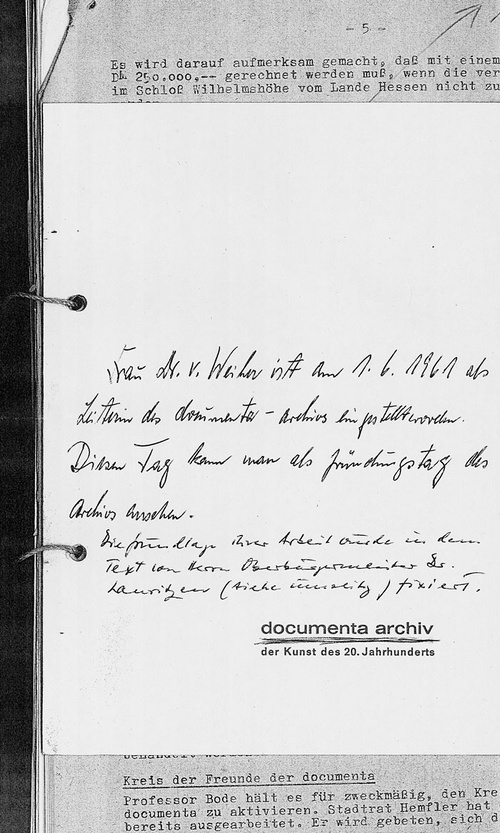 - 5 -
Es wird darauf aufmerksam gemacht, daß mit einem
DM. 250.000,-- gerechnet werden muß, wenn die ver
im Schloß Wilhelmshöhe vom Lande Hessen nicht zu
Frau Dr. v. Weiher ist am 1. 6. 1961 als
Leiterin des documenta - archivs eingestellt worden.
Diesen Tag kann man als Gründungstag des
Archivs ansehen.
Die Grundlage ihrer Arbeit wurde in dem
Text von Herrn Oberbürgermeister Dr.
Lauritzen (siehe umseitig) fixiert.
documenta archiv
der Kunst des 20. Jahrhunderts
Kreis der Freunde der documenta
Professor Bode hält es für zweckmäßig, den Kre
documenta zu aktivieren. Stadtrat Hemfler hat
bereits ausgearbeitet. Er wird gebeten, sich d